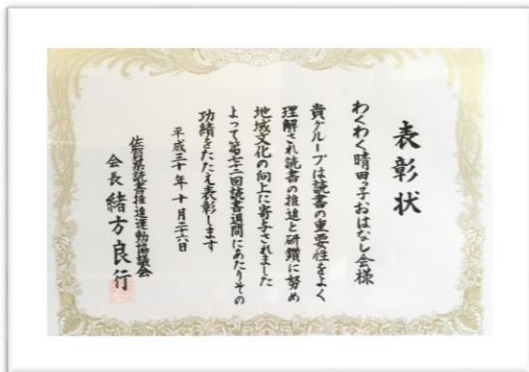 表彰状
わくわく晴田っ子おはなし会様
貴グループは読書の重要性をよく
理解され読書の推進と研鑽に努め
地域文化の向上に寄与されました
よって第七十二回読書週間にあたりその
功績をたたえ表彰します
平成三十年十月二十六日
佐賀県読書推進運動協議会
会長 緒方良行